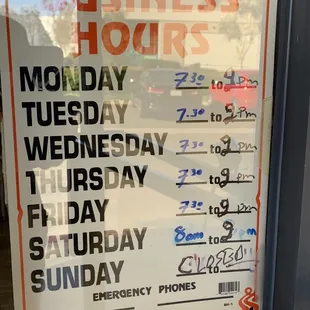 BUSINESS
HOURS
MONDAY 7:30 to 9 pm
TUESDAY 7:30 to 9 pm
WEDNESDAY 7:30 to 9 pm
THURSDAY 7:30 to 9 pm
FRIDAY 7:30 to 9 pm
SATURDAY 8am to 9 pm
SUNDAY CLOSED to
EMERGENCY PHONES